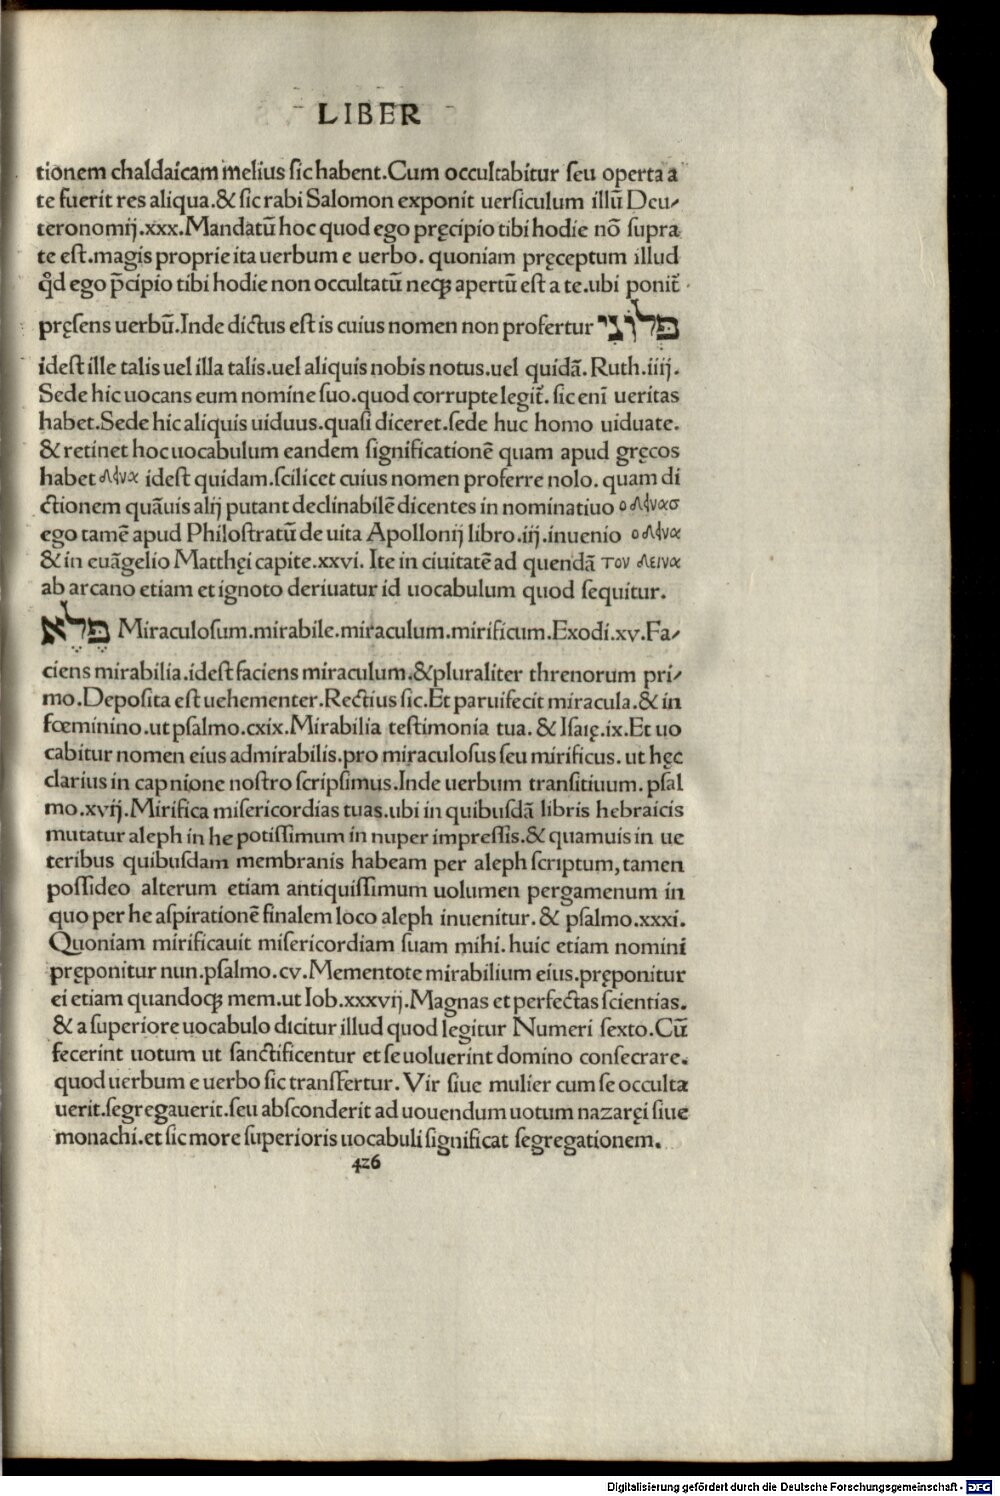 LIBER
tionem chaldaicam melius sic habent.Cum occultabitur seu operta a
te fuerit res aliqua.& sic rabi Salomon exponit uersiculum illũ Deu⸗
teronomij.xxx.Mandatũ hoc quod ego pręcipio tibi hodie nõ supra
te est.magis proprie ita uerbum e uerbo. quoniam pręceptum illud
qđ ego p̄cipio tibi hodie non occultatũ neqꝫ apertũ est a te.ubi ponit᷑
pręsens uerbũ.Inde dictus est is cuius nomen non profertur פְּלוֹנִי
idest ille talis uel illa talis.uel aliquis nobis notus.uel quidã. Ruth.iiij.
Sede hic uocans eum nomine suo.quod corrupte legit᷑. sic enĩ ueritas
habet.Sede hic aliquis uiduus.quasi diceret.sede huc homo uiduate.
& retinet hoc uocabulum eandem significationẽ quam apud gręcos
habet idest quidam.scilicet cuius nomen proferre nolo. quam di
ctionem quãuis alij putant declinabilẽ dicentes in nominatiuo
ego tamẽ apud Philostratũ de uita Apollonij libro.iij.inuenio
& in euãgelio Matthęi capite.xxvi. Ite in ciuitatẽ ad quendã τον δεινα
ab arcano etiam et ignoto deriuatur id uocabulum quod sequitur.
פֶּלֶא Miraculosum.mirabile.miraculum.mirificum.Exodi.xv.Fa⸗
ciens mirabilia.idest faciens miraculum.& pluraliter threnorum pri⸗
mo.Deposita est uehementer.Rectius sic.Et paruifecit miracula.& in
fœminino.ut psalmo.cxix.Mirabilia testimonia tua. & Isaię.ix.Et uo
cabitur nomen eius admirabilis.pro miraculosus seu mirificus. ut hęc
clarius in capnione nostro scripsimus.Inde uerbum transitiuum. psal
mo.xvij.Mirifica misericordias tuas.ubi in quibusdã libris hebraicis
mutatur aleph in he potissimum in nuper impressis.& quamuis in ue
teribus quibusdam membranis habeam per aleph scriptum, tamen
possideo alterum etiam antiquissimum uolumen pergamenum in
quo per he aspirationẽ finalem loco aleph inuenitur. & psalmo.xxxi.
Quoniam mirificauit misericordiam suam mihi. huic etiam nomini
pręponitur nun.psalmo.cv.Mementote mirabilium eius.pręponitur
ei etiam quandoqꝫ mem.ut Iob.xxxvij.Magnas et perfectas scientias.
& a superiore uocabulo dicitur illud quod legitur Numeri sexto.Cũ
fecerint uotum ut sanctificentur et se uoluerint domino consecrare.
quod uerbum e uerbo sic transfertur. Vir siue mulier cum se occulta
uerit.segregauerit.seu absconderit ad uouendum uotum nazaręi siue
monachi.et sic more superioris uocabuli significat segregationem.
426
Digitalisierung gefördert durch die Deutsche Forschungsgemeinschaft - DFG